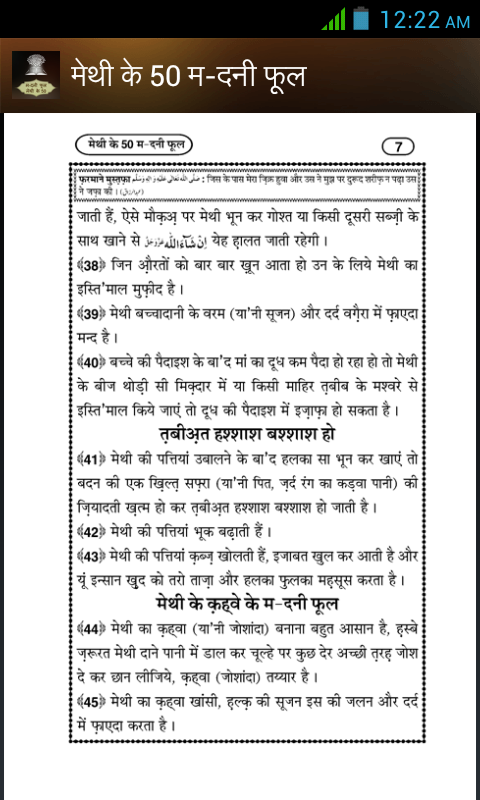 12:22 AM
मेथी के 50 म-दनी फूल
मेथी के 50 म-दनी फूल
7
फ़रमाने मुस्तफ़ा صلى الله تعالى عليه واله وسلم : जिस के पास मेरा ज़िक्र हुवा और उस ने मुझ पर दुरूद शरीफ़ न पढ़ा उस
ने जफ़ा की ।
जाती हैं, ऐसे मौक़अ़ पर मेथी भून कर गोश्त या किसी दूसरी सब्ज़ी के
साथ खाने से اِنْ شَآءَاللّٰه عَزَّوَجَلَّ येह हालत जाती रहेगी ।
﴾38﴿ जिन औ़रतों को बार बार ख़ून आता हो उन के लिये मेथी का
इस्ति'माल मुफ़ीद है ।
﴾39﴿ मेथी बच्चादानी के वरम (या'नी सूजन) और दर्द वग़ैरा में फ़ाएदा
मन्द है ।
﴾40﴿ बच्चे की पैदाइश के बा'द मां का दूध कम पैदा हो रहा हो तो मेथी
के बीज थोड़ी सी मिक़्दार में या किसी माहिर त़बीब के मश्वरे से
इस्ति'माल किये जाएं तो दूध की पैदाइश में इज़ाफ़ा हो सकता है ।
त़बीअ़त हश्शाश बश्शाश हो
﴾41﴿ मेथी की पत्तियां उबालने के बा'द हलका सा भून कर खाएं तो
बदन की एक ख़िल्त़ सफ़्रा (या'नी पित, ज़र्द रंग का कड़वा पानी) की
ज़ियादती ख़त्म हो कर त़बीअ़त हश्शाश बश्शाश हो जाती है ।
﴾42﴿ मेथी की पत्तियां भूक बढ़ाती हैं ।
﴾43﴿ मेथी की पत्तियां क़ब्ज़ खोलती हैं, इजाबत खुल कर आती है और
यूं इन्सान ख़ुद को तरो ताज़ा और हलका फुलका महसूस करता है ।
मेथी के क़ह्वे के म-दनी फूल
﴾44﴿ मेथी का क़ह्वा (या'नी जोशांदा) बनाना बहुत आसान है, ह़स्बे
ज़रूरत मेथी दाने पानी में डाल कर चूल्हे पर कुछ देर अच्छी त़रह़ जोश
दे कर छान लीजिये, क़ह्वा (जोशांदा) तय्यार है ।
﴾45﴿ मेथी का क़ह्वा खांसी, ह़ल्क़ की सूजन इस की जलन और दर्द
में फ़ाएदा करता है ।